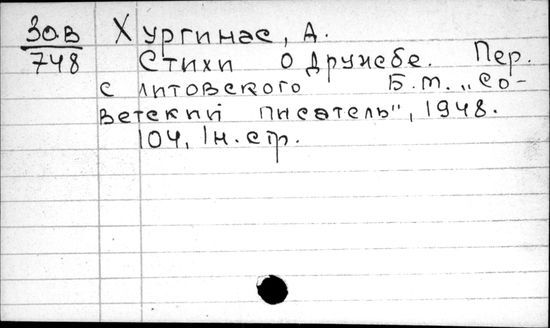 Зов Хургинас, А.
748 Стихи о дружбе. Пер.
с литовского Б.м. „Со-
ветский писатель", 1948.
104, 1н. стр.